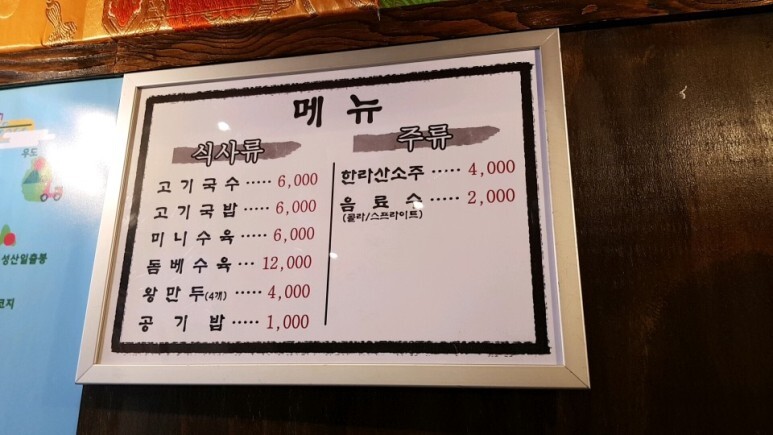 메뉴
식사류
고기국수 ····· 6,000
고기국밥 ····· 6,000
미니수육 ····· 6,000
돔베수육 ··· 12,000
왕만두(4개) ····· 4,000
공기밥 ····· 1,000
주류
한라산소주 ····· 4,000
음료수 ····· 2,000
(콜라/스프라이트)
우도
성산일출봉
코지